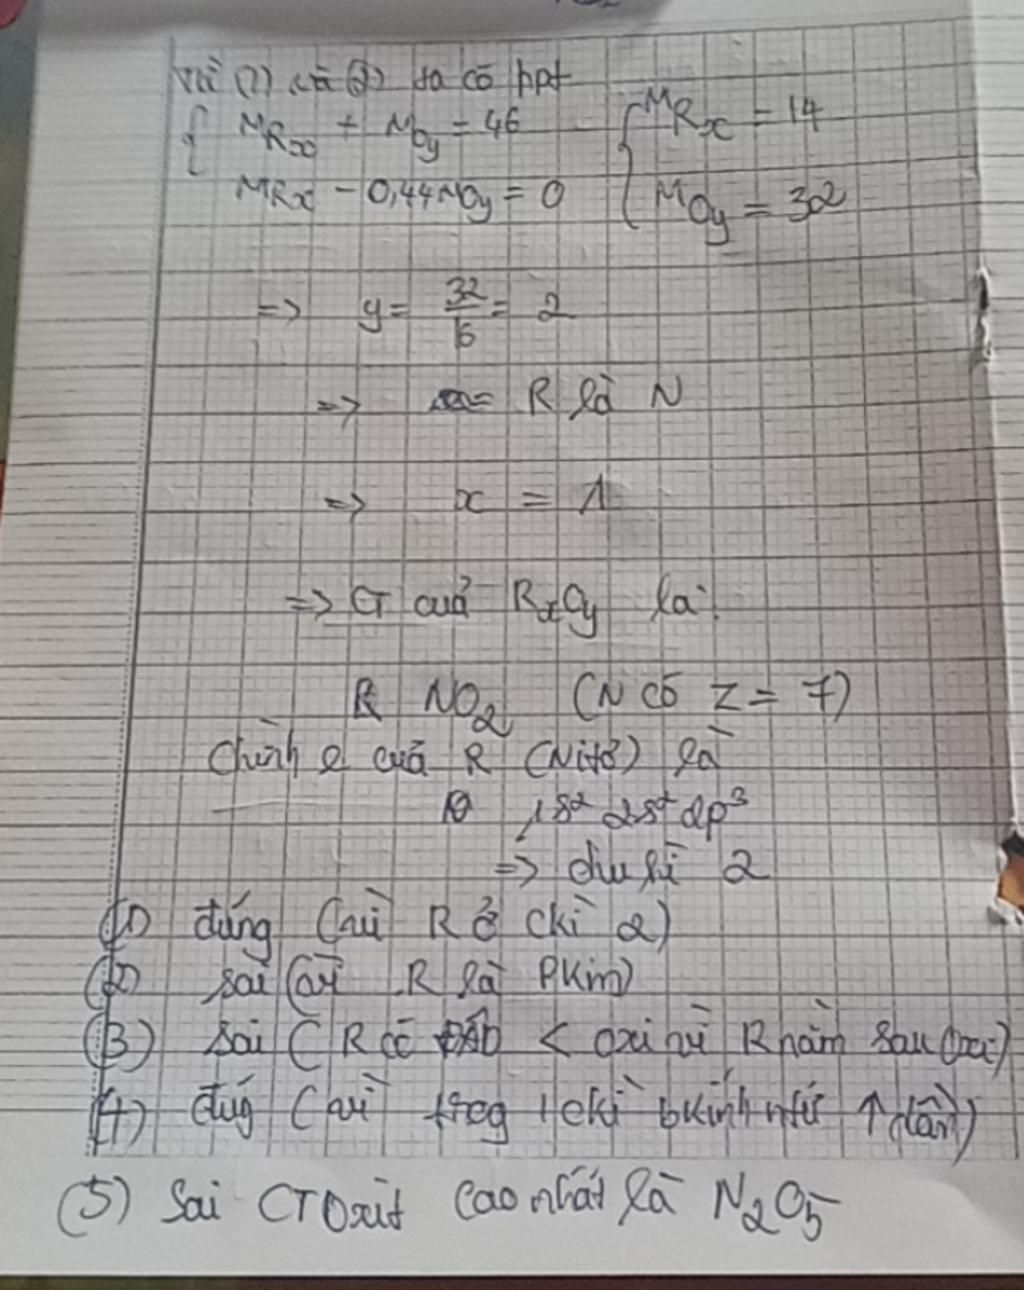 Từ (1) và (2) ta có hpt
{ MRx + MOy = 46 { MRx = 14
MRx - 0,44MOy = 0 MOy = 32
=> y = 32/16 = 2
=> R là N
=> x = 1
=> CT cuả RxOy là:
NO2 (N có Z = 7)
Chình e cuả R (Nitơ) là
1s² 2s² 2p³
=> chu kì 2
(1) đúng (vì R ở Ckì 2)
(2) sai (vì R là PKim)
(3) sai ( R có ĐÂĐ < oxi vì R nằm sau Oxi)
(4) đúg (vì trog 1 ckì bkính ntử ↑ dần)
(5) Sai CT Oxit cao nhất là N2O5